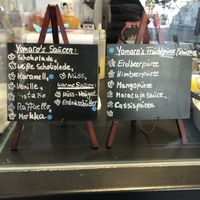 Yomaro's Saucen:
Schokolade,
weiße Schokolade,
Karamell,
Vanille,
Pistazie
Raffaello,
Mokka
Nuss,
warme Saucen:
Nuss-Nougat
Erdnussbutter
Yomaro's Fruchtpüree/Saucen
Erdbeerpüree
Himbeerpüree
Mangopüree
Maracuja Sauce,
Cassispüree